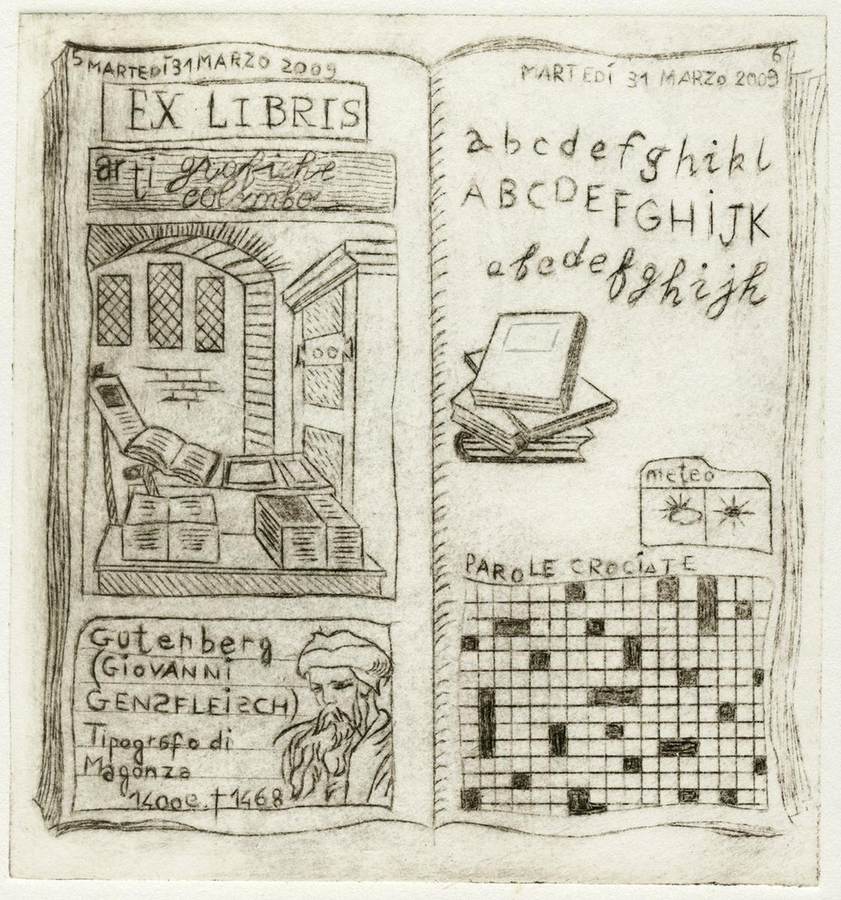 5 MARTEDÍ 31 MARZO 2009
EX LIBRIS
arti grafiche
colombo
Gutenberg
(GIOVANNI
GENSFLEISCH)
Tipografo di
Magonza
1400c. † 1468
6
MARTEDÍ 31 MARZO 2009
a b c d e f g h i k l
A B C D E F G H I J K
a b c d e f g h i j h
meteo
PAROLE CROCIATE